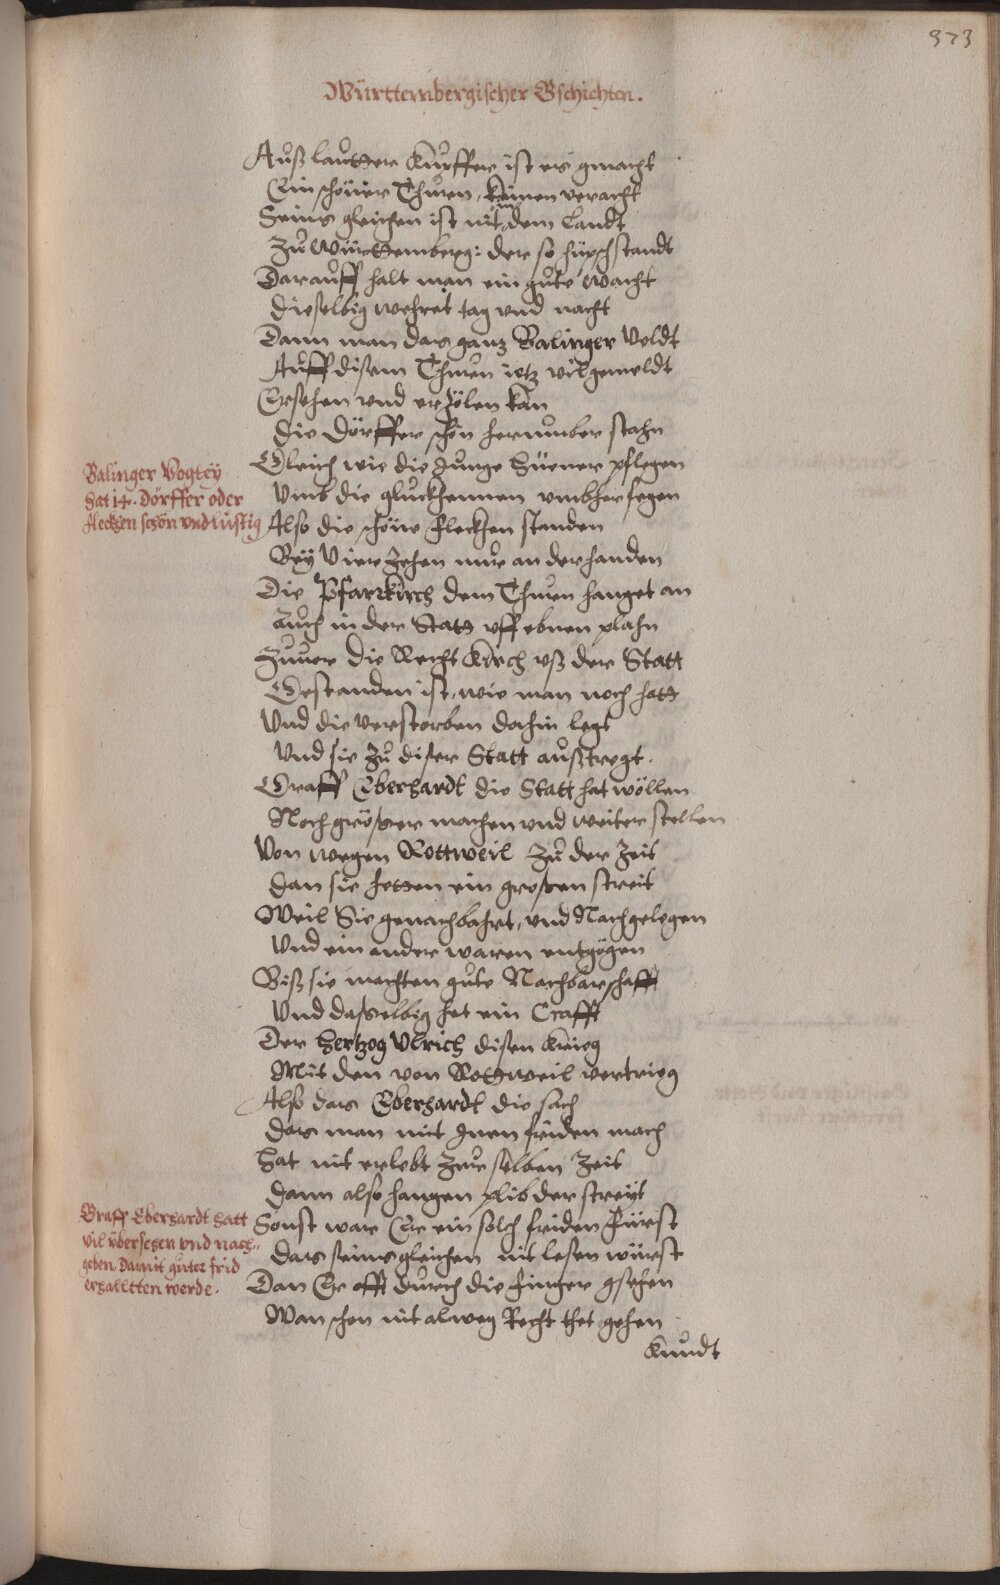 373
Württembergischer Gschichten.
Auß lautter Kupffer ist er gmacht
Ein schöner Thurn, keinen veracht
Seins gleichen ist nit im dem Landt
Zu Württemberg: der so hüpsch standt
Darauff halt man ein gute wacht
dieselbig wehret tag vnd nacht
Dann man das gantz Balinger Veldt
Auff disem Thurn ietz vilgemeldt
Ersehen vnd erzölen kan
die Dörffer schön herumber stahn
Gleich wie die Junge hüener pflegen
Vmb die gluckhennen vmbher fegen
Also die schöne fleckhen standen
Bey Vierzehen nur an der handen
Die Pfarrkirch dem Thurn hanget an
Auch in der Statt vff ebnen plahn
Zuuor die Recht Kirch vß der Statt
Gestanden ist, wie man noch hatt
Vnd die verstorben dahin legt
Vnd sie zu diser Statt außtregt.
Graff Eberhardt die Statt hat wöllen
Noch grösser machen vnd weiter stellen
Von wegen Rottweil zu der Zeit
dan sie hetten ein grossen streit
Weil Sie genachbahrt, vnd Nachgelegen
Vnd ein ander waren entgögen
Biß sie machten gute Nachbarschafft
Vnd dasselbig hat ein Crafft
Der Hertzog Vlrich disen Krieg
Mit den von Rottweil vertrieg
Also das Eberhardt die sach
das man mit Inen friden mach
Hat nit erlebt zur selben Zeit
dann also hangen plib der streyt
Sonst war Er ein solch friden Fürst
das seins gleichen nit lesen würst
Dan Er offt durch die finger gsehen
Wan schon nit alweg Recht thet gehen
Kundt
Balinger Vogtey
hat 14. Dörffer oder
fleckhen schön vnd lustig
Graff Eberhardt hatt
vil übersehen vnd nach-
geben, damit guter frid
erhalltten werde.